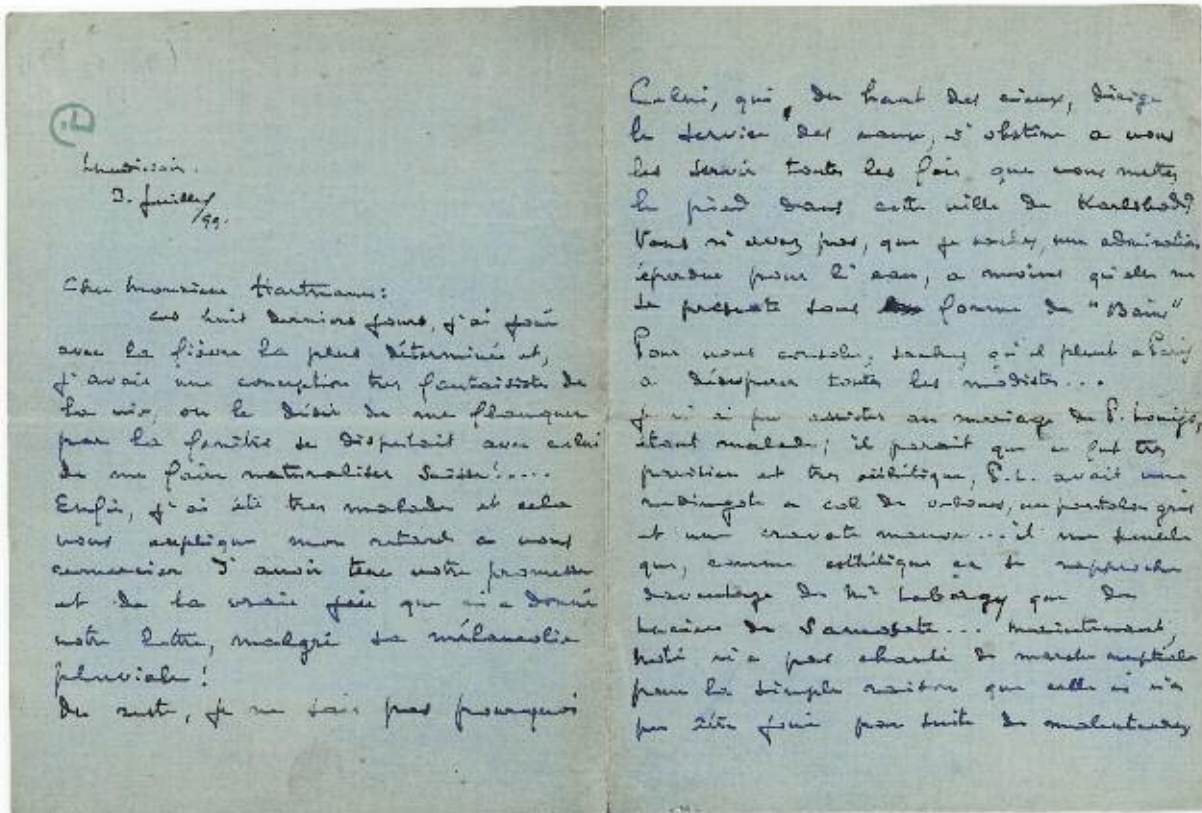 Lundi soir.
3. Juillet/99.
Cher Monsieur Hartmann:
ces huit derniers jours, j'ai joué
avec la fièvre la plus déterminée et,
j'avais une conception très fantaisiste de
la vie, où le désir de me flanquer
par la fenêtre se disputait avec celui
de me faire naturaliser Suisse!....
Enfin, j'ai été très malade et cela
vous explique mon retard à vous
remercier d'avoir tenu votre promesse
et de la vraie joie que m'a donné
votre lettre, malgré sa mélancolie
pluviale!
Du reste, je ne sais pas pourquoi
Celui, qui, du haut des cieux, dirige
le service des eaux, s'obstine à vous
les servir toutes les fois que vous mettez
le pied dans cette ville de Karlsbad?
Vous n'avez pas, que je sache, une admiration
éperdue pour l'eau, a moins qu'elle ne
se présente sous forme de "Bain"
Pour vous consoler, sachez qu'il pleut a Paris
a désespérer toutes les modistes...
Je n'ai pu assister au mariage de P. Louÿs,
étant malade; il parait que ce fut très
parisien et très esthétique, P.L. avait une
redingote a col de velours, un pantalon gris
et une cravate mauve... il me semble
que, comme esthétique ça se rapproche
davantage de Mr Lebargy que de
Lucien de Samosate... maintenant,
n'a pas chanté de marche nuptiale
pour la simple raison que celle ci n'a
pu être joué par suite de malentendus